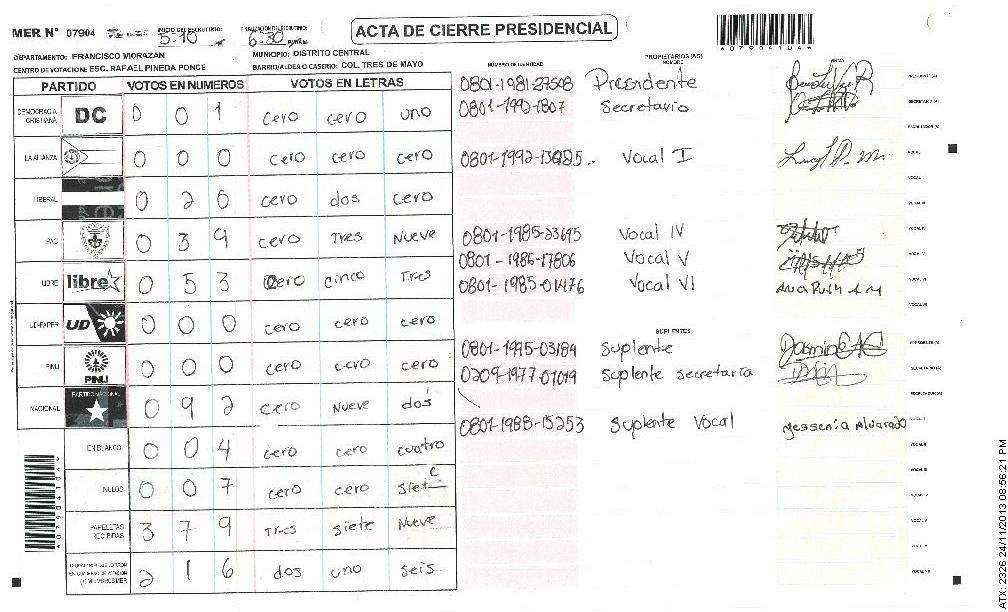 MER N° 07904 INICIO DEL ESCRUTINIO: 5:10 FINALIZACION DEL ESCRUTINIO: 6:30
ACTA DE CIERRE PRESIDENCIAL
*07904104*
DEPARTAMENTO: FRANCISCO MORAZAN MUNICIPIO: DISTRITO CENTRAL
CENTRO DE VOTACION: ESC. RAFAEL PINEDA PONCE BARRIO/ALDEA O CASERIO: COL TRES DE MAYO
NUMERO DE IDENTIDAD PROPIETARIOS (AS) NOMBRE FIRMA
PARTIDO VOTOS EN NUMEROS VOTOS EN LETRAS
0801-1981-27508 Presidente PRESIDENTE (A)
0801-1992-1807 Secretario SECRETARIO (A)
DEMOCRACIA CRISTIANA DC 0 0 1 cero cero uno
ESCRUTADOR (A)
LA ALIANZA 0 0 0 cero cero cero
0801-1992-13025.. Vocal I VOCAL I
VOCAL II
LIBERAL 0 2 6 cero dos cero
VOCAL III
PAC 0 3 9 cero Tres Nueve
0801-1985-23695 Vocal IV VOCAL IV
0801-1986-17806 Vocal V VOCAL V
LIBRE libre 0 5 3 cero cinco Tres
0801-1985-01476 Vocal VI VOCAL VI
VOCAL VII
UD-FAPER UD 0 0 0 cero cero cero
SUPLENTES
0801-1995-03184 Suplente PRESIDENTE (A)
PINU PINU 0 0 0 cero cero cero
0209-1977-01019 Suplente secretaria SECRETARIO (A)
ESCRUTADOR (A)
NACIONAL PARTIDO NACIONAL 0 9 2 cero Nueve dos
0801-1988-15253 Suplente Vocal Yessenia Alvarado VOCAL I
EN BLANCO 0 0 4 cero cero cuatro
VOCAL II
VOCAL III
NULOS 0 0 7 cero cero siete
VOCAL IV
PAPELETAS RECIBIDAS 3 7 9 Tres siete Nueve
VOCAL V
VOCAL VI
2 1 6 dos uno seis
VOCAL VII
*07904104*
ATX: 2326 24/11/2013 08:56:21 PM